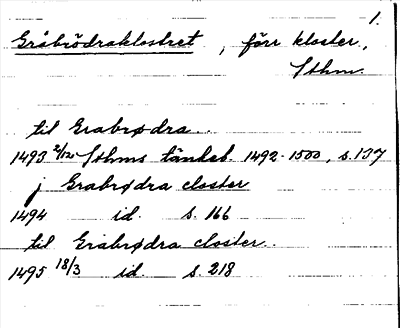 1.
Gråbrödraklostret, förr kloster,
Sthm.
til Grabrødra.
1493 2/12 Sthms tänkeb. 1492-1500, s. 137
j Grabrødra closter
1494 id. s. 166
til Grabrødra closter.
1495 18/3 id. s. 218